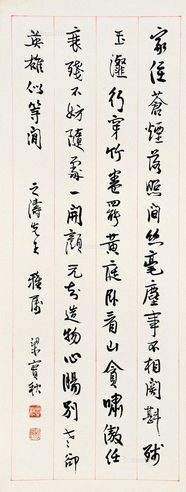 家住蒼煙落照間絲毫塵事不相關斟殘
玉瀣行穿竹卷罷黃庭臥看山貪嘯傲任
衰殘不妨隨處一開顏元知造物心腸別老卻
英雄似等閒　之濤先生　雅屬　梁實秋